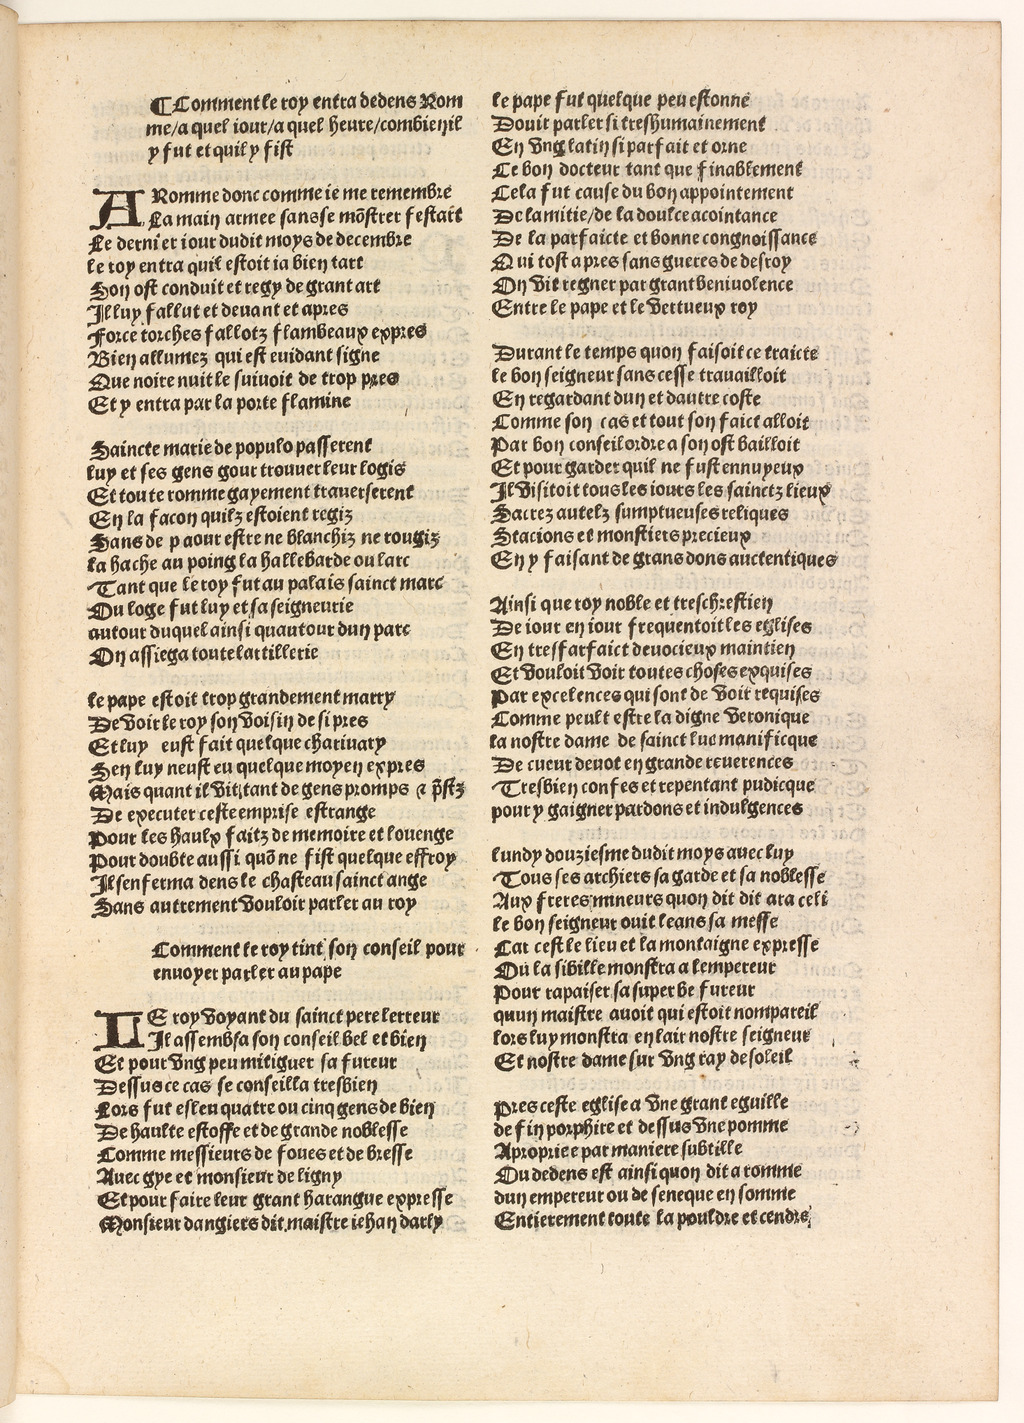 ¶ Comment le roy entra dedens Rom
me/a quel iour/a quel heure/combien il
y fut et quil y fist
A Romme donc comme ie me remembre
La main armee sans se mõstrer festart
Le dernier iour dudit moys de decembre
le roy entra quil estoit ia bien tart
Son ost conduit et regy de grant art
Il luy fallut et devant et apres
Force torches fallotz flambeaux expres
Bien allumez qui est euidant signe
Que noire nuit le suiuoit de trop pres
Et y entra par la porte flamine
Saincte marie de populo passerent
luy et ses gens gour trouuer leur logis
Et toute romme gayement trauerserent
En la facon quilz estoient regiz
Sans de paour estre ne blanchiz ne rougiz
la hache au poing la hallebarde ou larc
Tant que le roy fut au palais sainct marc
Ou loge fut luy et sa seigneurie
autour duquel ainsi quautour dun parc
On assiega toute lartillerie
le pape estoit trop grandement marry
De voir le roy son voisin de si pres
Et luy eust fait quelque charivary
Sen luy neust eu quelque moyen expres
Mais quant il vit tant de gens promps ⁊ p̃stz
De executer ceste emprise estrange
Pour les haulx faitz de memoire et louenge
Pour doubte aussi quõ ne fist quelque effroy
Il senferma dens le chasteau sainct ange
Sans autrement vouloir parler au roy
Comment le roy tint son conseil pour
enuoyer parler au pape
LE roy voyant du sainct pere lerreur
Il assembla son conseil bel et bien
Et pour vng peu mitiguer sa fureur
Dessus ce cas se conseilla tresbien
Lors fut esleu quatre ou cinq gens de bien
De haulte estoffe et de grande noblesse
Comme messieurs de foues et de bresse
Auec gye et monsieur de ligny
Et pour faire leur grant harangue expresse
Monsieur dangiers dit maistre iehan darly
le pape fut quelque peu estonne
Douir parler si treshumainement
En vng latin si parfait et orne
Le bon docteur tant que finablement
Cela fut cause du bon appointement
De lamitie/de la doulce acointance
De la parfaicte et bonne congnoissance
Qui tost apres sans gueres de desroy
On vit regner par grant beniuolence
Entre le pape et le vertueux roy
Durant le temps quon faisoit ce traicte
le bon seigneur sans cesse travailloit
En regardant dun et dautre coste
Comme son cas et tout son faict alloit
Par bon conseil ordre a son ost bailloit
Et pour garder quil ne fust ennuyeux
Il visitoit tous les iours les sainctz lieux
Sacrez autelz sumptueuses reliques
Stacions et monstiers precieux
En y faisant de grans dons auctentiques
Ainsi que roy noble et treschrestien
De iour en iour frequentoit les eglises
En tresfarfaict deuocieux maintien
Et vouloit voir toutes choses exquises
Par excelences qui sont de voir requises
Comme peult estre la digne veronique
la nostre dame de sainct luc manificque
De cueur devot en grande reuerences
Tresbien confes et repentant pudicque
pour y gaigner pardons et indulgences
lundy douziesme dudit moys avec luy
Tous ses archiers sa garde et sa noblesse
Aux freres mineurs quon dit dit ara celi
le bon seigneur ouit leans sa messe
Car cest le lieu et la montaigne expresse
Ou la sibille monstra a lempereur
Pour rapaiser sa superbe fureur
quun maistre auoit qui estoit nompareil
lors luy monstra en lair nostre seigneur
Et nostre dame sur vng ray de soleil
Pres ceste eglise a vne grant eguille
de fin porphire et dessus vne pomme
Apropriee par maniere subtille
Ou dedens est ainsi quon dit a romme
dun empereur ou de seneque en somme
Entierement toute la pouldre et cendre